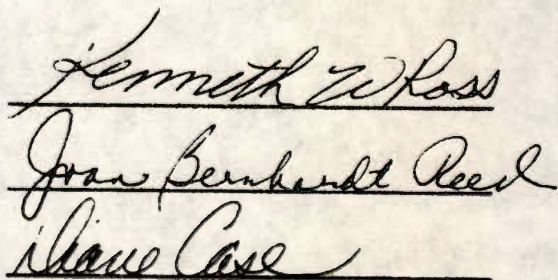 Kenneth W Ross
Joan Bernhardt Reed
Diane Case